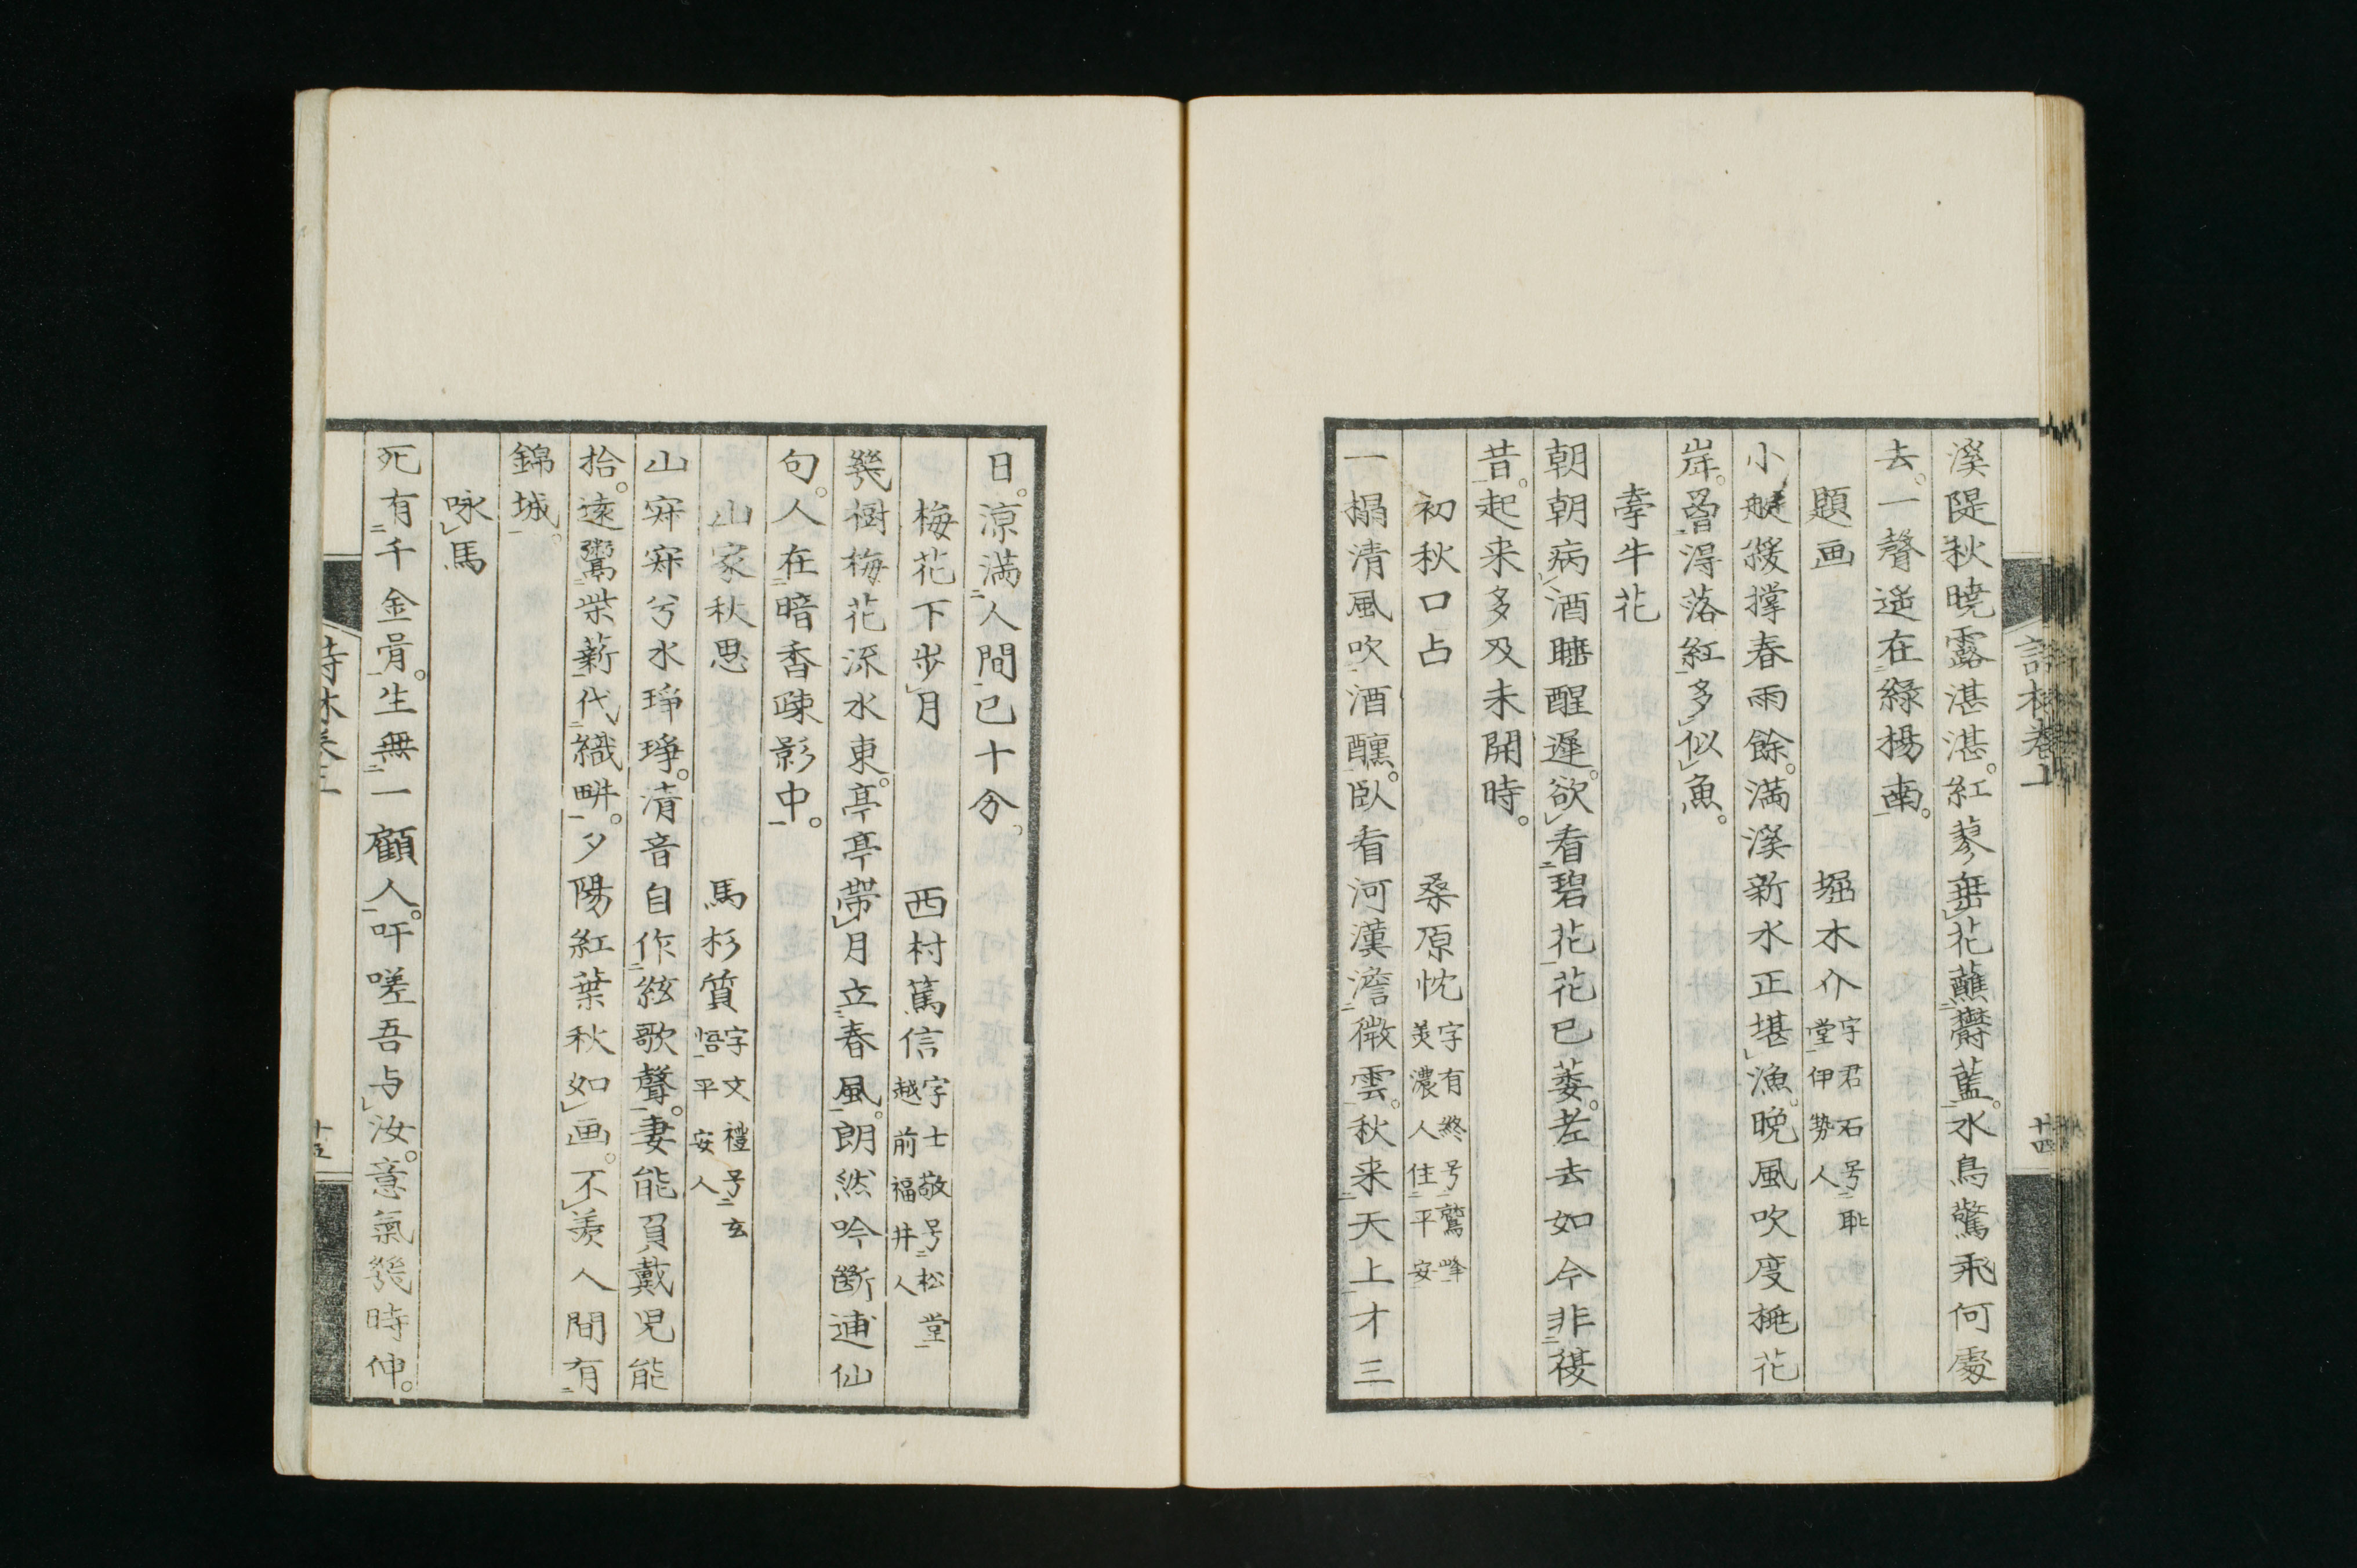 溪隄秋曉露湛湛。紅蓼垂花蘸鬱藍。水鳥驚飛何處
去。一聲遥在緑楊南。
題画　堀木介字君石号耻堂伊勢人
小艇緩撑春雨餘。満溪新水正堪漁。晩風吹度桃花
岸。罾得落紅多似魚。
牽牛花
朝朝病酒睡醒遲。欲看碧花花已萎。老去如今非復
昔。起来多及未開時。
初秋口占　桑原忱字有終号鷲峰美濃人住平安
一榻清風吹酒醺。臥看河漢澹微雲。秋来天上才三
日。涼満人間已十分。
梅花下歩月　西村篤信字士敬号松堂越前福井人
幾樹梅花深水東。亭亭帶月立春風。朗然吟斷逋仙
句。人在暗香疎影中。
山家秋思　馬杉質字文禮号玄悟平安人
山寂寂兮水琤琤。清音自作絃歌聲。妻能負戴児能
拾。遠鬻柴薪代織畊。夕陽紅葉秋如画。不羨人間有
錦城。
咏馬
死有千金骨。生無一顧人。吁嗟吾与汝。意氣幾時伸。
十四
十五